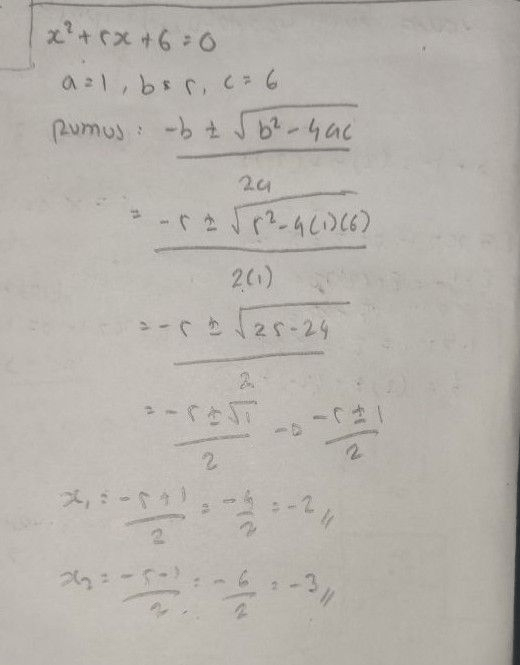 x² + 5x + 6 = 0
a = 1, b = 5, c = 6
Rumus : (-b ± √(b² - 4ac)) / 2a
= (-5 ± √(5² - 4(1)(6))) / 2(1)
= (-5 ± √(25 - 24)) / 2
= (-5 ± √1) / 2 → (-5 ± 1) / 2
x₁ = (-5 + 1) / 2 = -4/2 = -2 //
x₂ = (-5 - 1) / 2 = -6/2 = -3 //